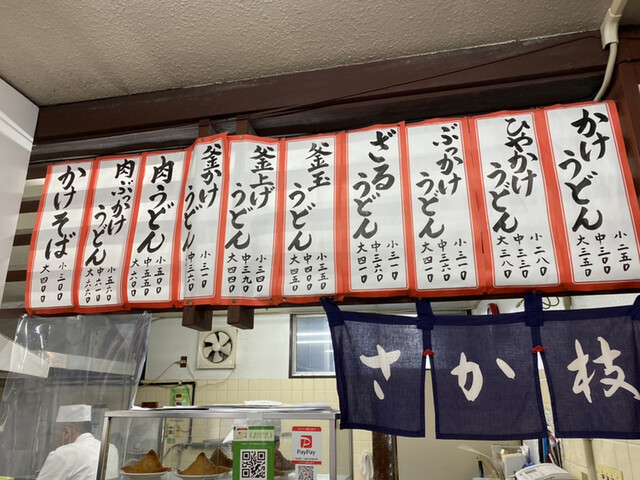 かけうどん
小二五〇
中三〇〇
大三五〇
ひやかけうどん
小二八〇
中三三〇
大三八〇
ぶっかけうどん
小三一〇
中三六〇
大四一〇
ざるうどん
小三一〇
中三六〇
大四一〇
釜玉うどん
小三五〇
中四〇〇
大四五〇
釜上げうどん
小三四〇
中三九〇
大四四〇
釜かけうどん
小三一〇
中三六〇
肉うどん
小五〇〇
中五五〇
大六〇〇
肉ぶっかけうどん
小五六〇
中六一〇
大六六〇
かけそば
さか枝
PayPay
PayPay